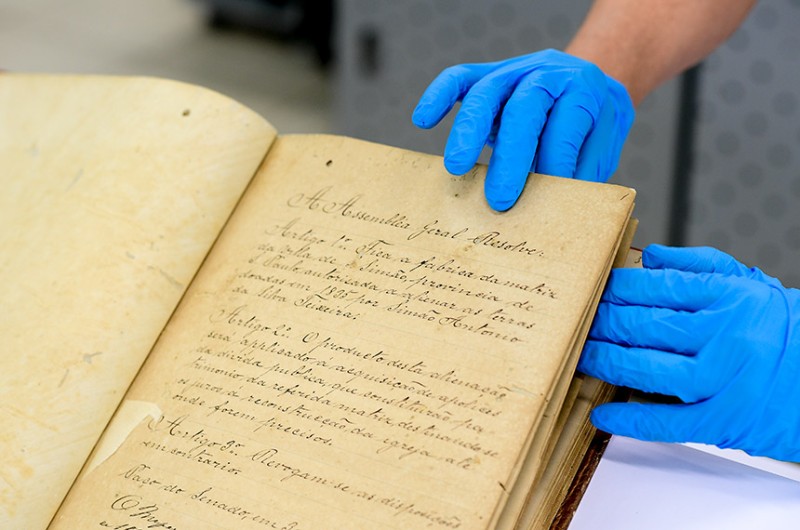 A Assemblea Geral Resolve:
Artigo 1º. Fica a fabrica da matriz
da villa de S. Simão, provincia de
S. Paulo, autorisada a alienar as terras
doadas em 1835 por Simão Antonio
da Silva Teixeira.
Artigo 2º. O producto desta alienação
será applicado á acquisição de apolices
da divida publica, que constituirão pa-
trimonio da referida matriz, destinando-se
os juros a reconstrucção da igreja, até
onde forem precisos.
Artigo 3º. Revogam-se as disposições
em contrario.
Paço do Senado, em